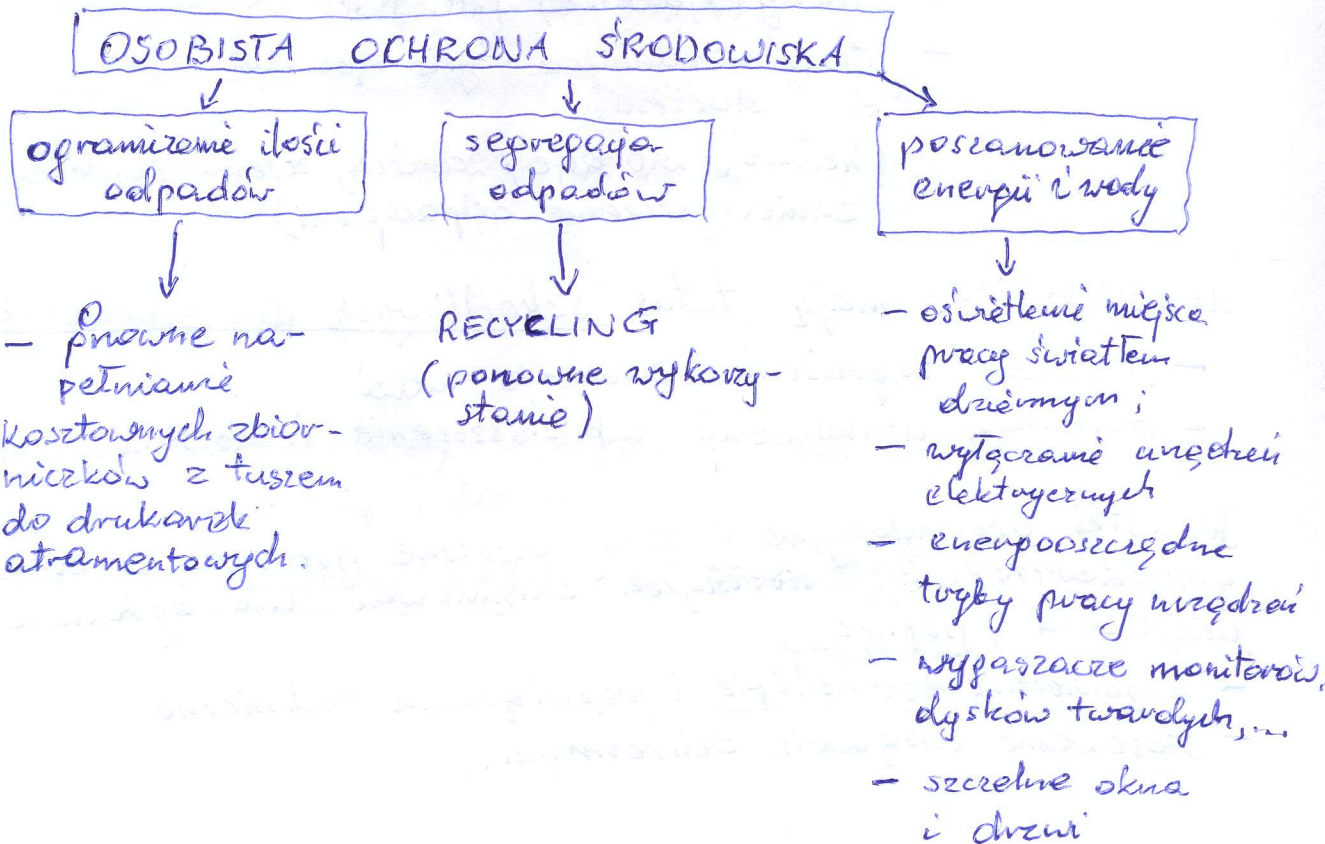 OSOBISTA OCHRONA ŚRODOWISKA
ograniczenie ilości
odpadów
segregacja
odpadów
poszanowanie
energii i wody
– ponowne na-
pełnianie
kosztownych zbior-
niczków z tuszem
do drukarek
atramentowych.
RECYCLING
(ponowne wykorzy-
stanie)
– oświetlenie miejsca
pracy światłem
dziennym;
– wyłączanie urządzeń
elektrycznych
– energooszczędne
tryby pracy urządzeń
– wygaszacze monitorów,
dysków twardych,...
– szczelne okna
i drzwi